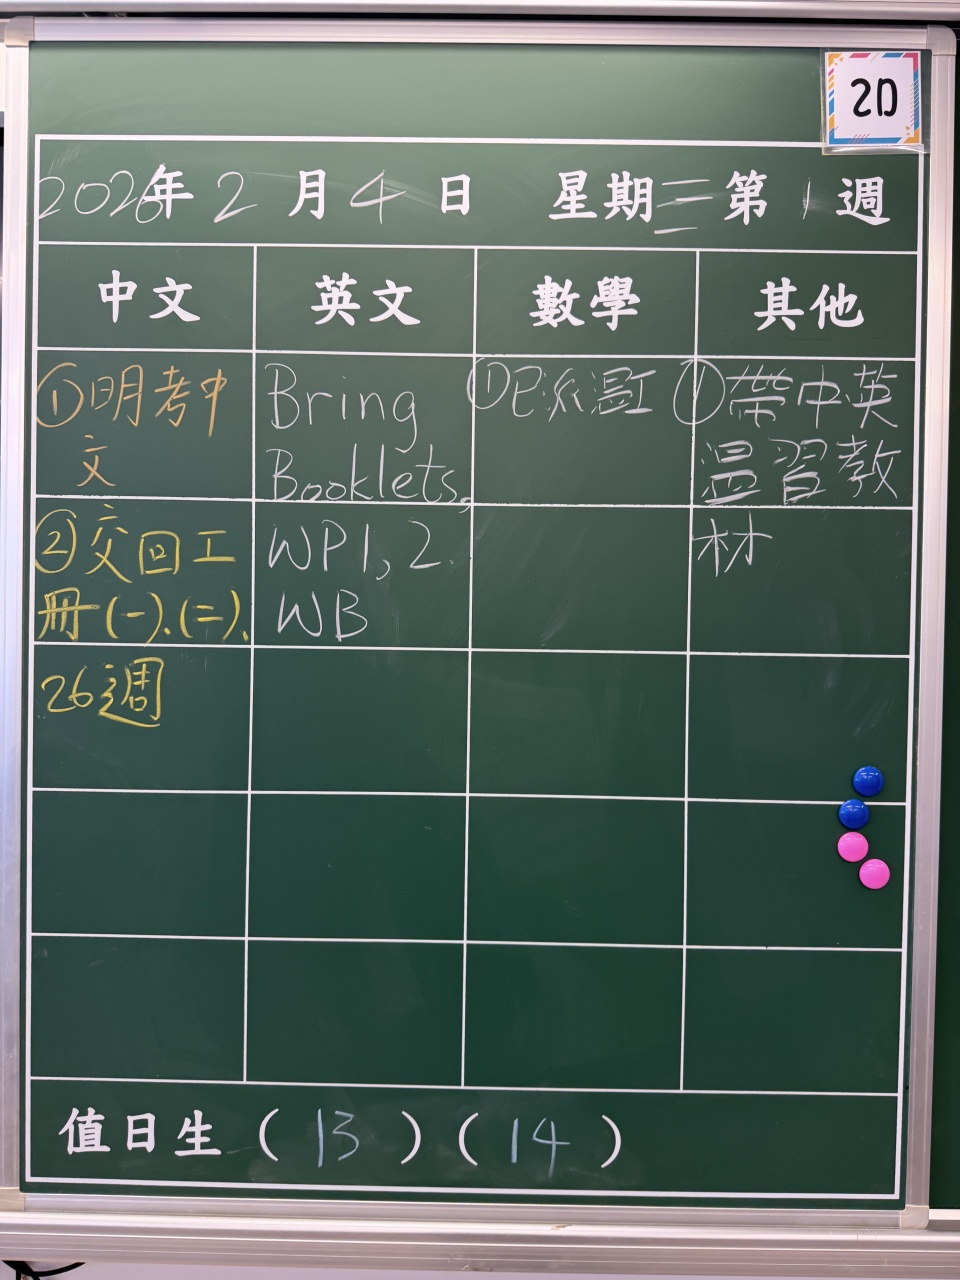 2D
2026年2月4日 星期三第1週
中文 英文 數學 其他
①明考中
文
②交回工
冊(一)、(二)、
26週
Bring
Booklets,
WP1, 2.
WB
①已派溫工
①帶中英
溫習教
材
值日生(13)(14)